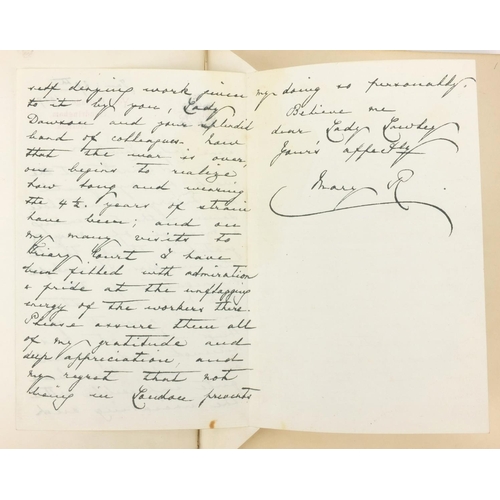 self denying work given
to it by you, Lady
Dawson and your splendid
band of colleagues. Now
that the war is over,
one begins to realize
how long and wearing
the 4½ years of strain
have been; and on
my many visits to
Friary Court I have
been filled with admiration
& pride at the unflagging
energy of the workers there.
Please assure them all
of my gratitude and
deep appreciation, and
my regret that not
being in London prevents
my doing so personally.
Believe me
dear Lady Lawley
Yours affectly
Mary R.